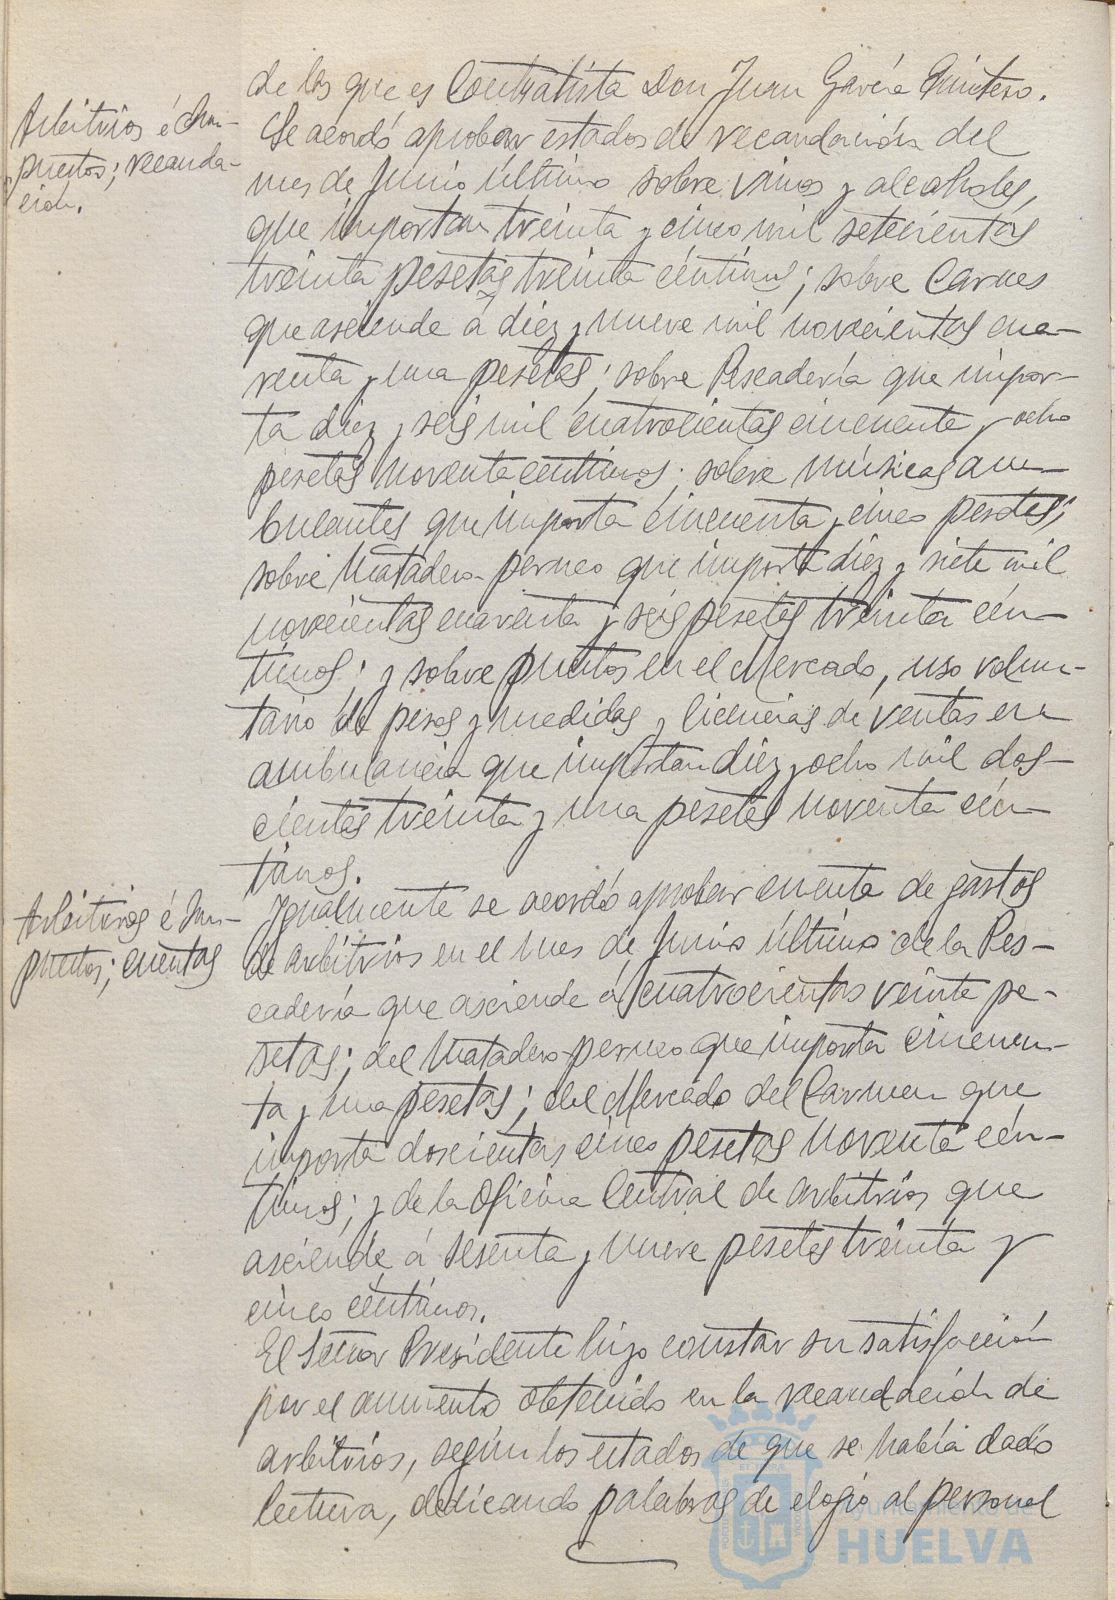 de los que es Contratista Don Juan García Quintero.
Arbitrios é Im-
puestos; recauda-
ción.
Se acordó aprobar estados de recaudación del
mes de Junio último sobre vinos y alcoholes,
que importan treinta y cinco mil setecientas
treinta pesetas treinta céntimos; sobre Carnes
que asciende á diez y nueve mil novecientas cua-
renta y una pesetas; sobre Pescadería que impor-
ta diez y seis mil cuatrocientas cincuenta y ocho
pesetas noventa centimos; sobre músicas am-
bulantes que importa cincuenta y cinco pesetas;
sobre Matadero-porneo que importa diez y siete mil
novecientas cuarenta y seis pesetas treinta cén-
timos; y sobre puestos en el Mercado, uso volun-
tario de pesas y medidas y licencias de ventas en
ambulancia que importan diez y ocho mil dos-
cientas treinta y una pesetas noventa cén-
timos.
Arbitrios é Im-
puestos; cuentas
Igualmente se acordó aprobar cuenta de gastos
de arbitrios en el mes de Junio último de la Pes-
cadería que asciende á cuatrocientas veinte pe-
setas; del Matadero-porneo que importa cincuen-
ta y una pesetas; del Mercado del Carmen que
importa doscientas cinco pesetas noventa cén-
timos; y de la Oficina Central de arbitrios que
asciende á sesenta y nueve pesetas treinta y
cinco céntimos.
El Señor Presidente hizo constar su satisfacción
por el aumento obtenido en la recaudación de
arbitrios, según los estados de que se había dado
lectura, dedicando palabras de elogio al personal
Ayuntamiento de
HUELVA